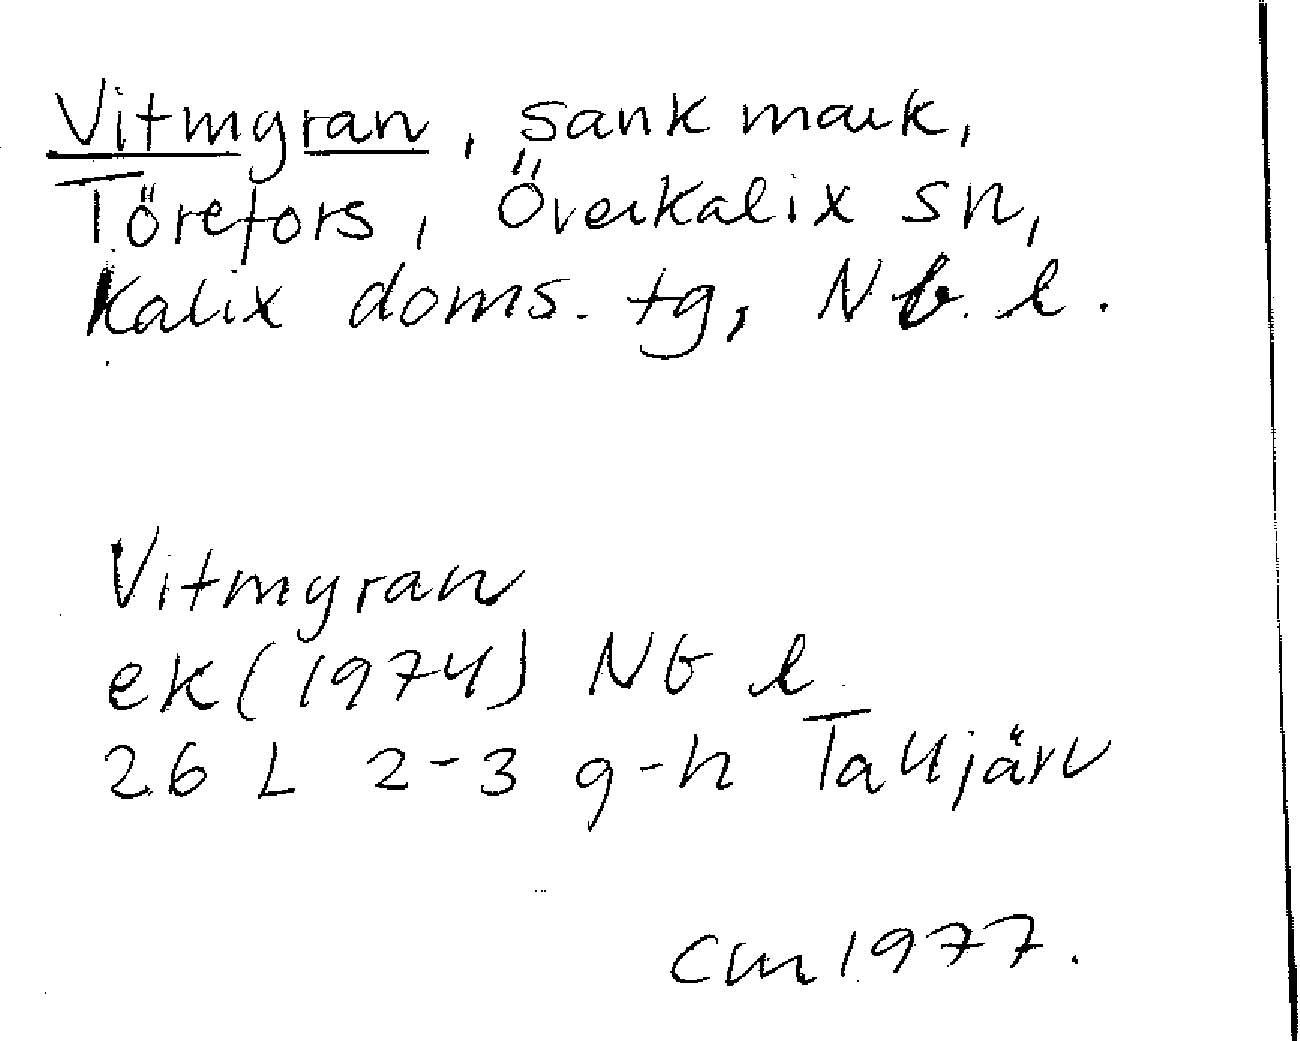 Vitmyran, sank mark,
Törefors, Överkalix sn,
Kalix doms. tg, Nb. l.
Vitmyran
ek (1974) Nb l.
26 L 2-3 g-h Talljärv
CM 1977.